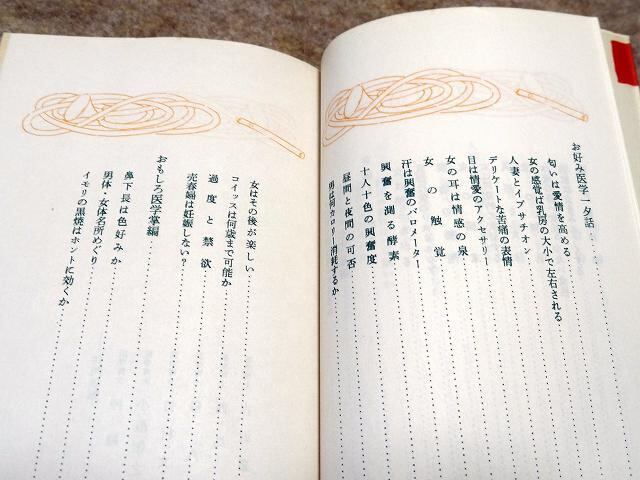 お好み医学一夕話
匂いは愛情を高める
女の感覚は乳房の大小で左右される
人妻とイプサチオン
デリケートな苦痛の表情
目は情愛のアクセサリー
女の耳は情感の泉
女の触覚
汗は興奮のバロメーター
興奮を測る酵素
十人十色の興奮度
昼間と夜間の可否
男は何カロリー消耗するか
女はその後が楽しい
コイッスは何歳まで可能か
過度と禁欲
売春婦は妊娠しない?
おもしろ医学掌編
鼻下長は色好みか
男体・女体名所めぐり
イモリの黒焼はホントに効くか